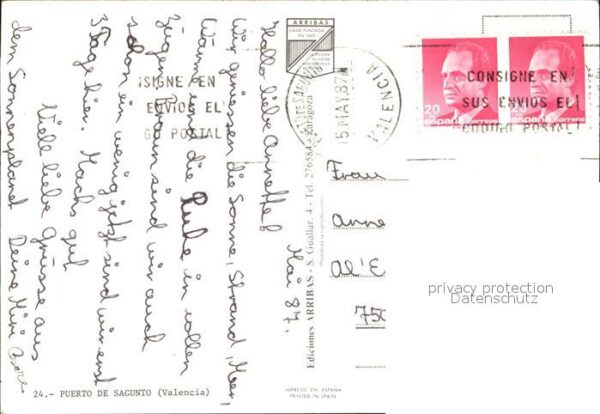 Mai 87.
Hallo liebe Annette!
Wir geniessen die Sonne, Strand, Meer,
Wärme und die Ruhe in vollen
Zügen. Braun sind wir auch
schon ein wenig jetzt sind wir erst
3 Tage hier. Machs gut
Viele liebe Grüsse aus
dem Sonnenplanet Deine Mini
24.- PUERTO DE SAGUNTO (Valencia)
ARRIBAS
CASA FUNDADA
Ediciones ARRIBAS - S. Guallar, 4 - Tel. 27688 Zaragoza
IMPRESO EN ESPAÑA
PRINTED IN SPAIN
NSIGNE EN
ENVIOS EL
POSTAL
15 MAY. 87
VALENCIA
CONSIGNE EN
SUS ENVIOS EL
CODIGO POSTAL
20
españa correos
españa correos
Frau
Anne
Al'E
750
privacy protection
Datenschutz